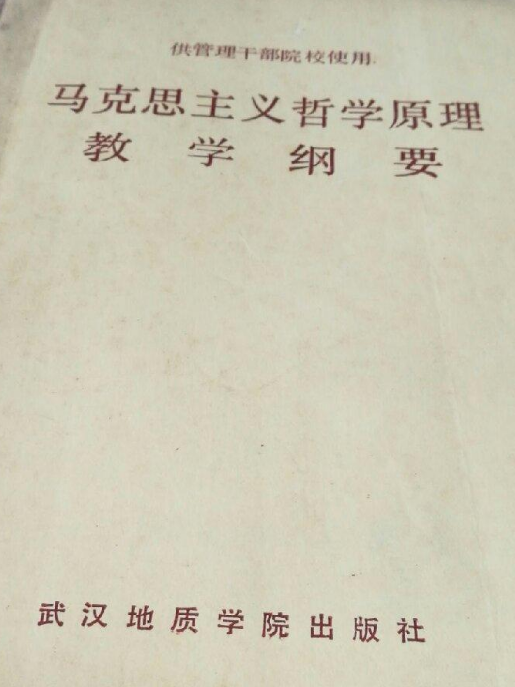 供管理干部院校使用.
马克思主义哲学原理
教学纲要
武汉地质学院出版社